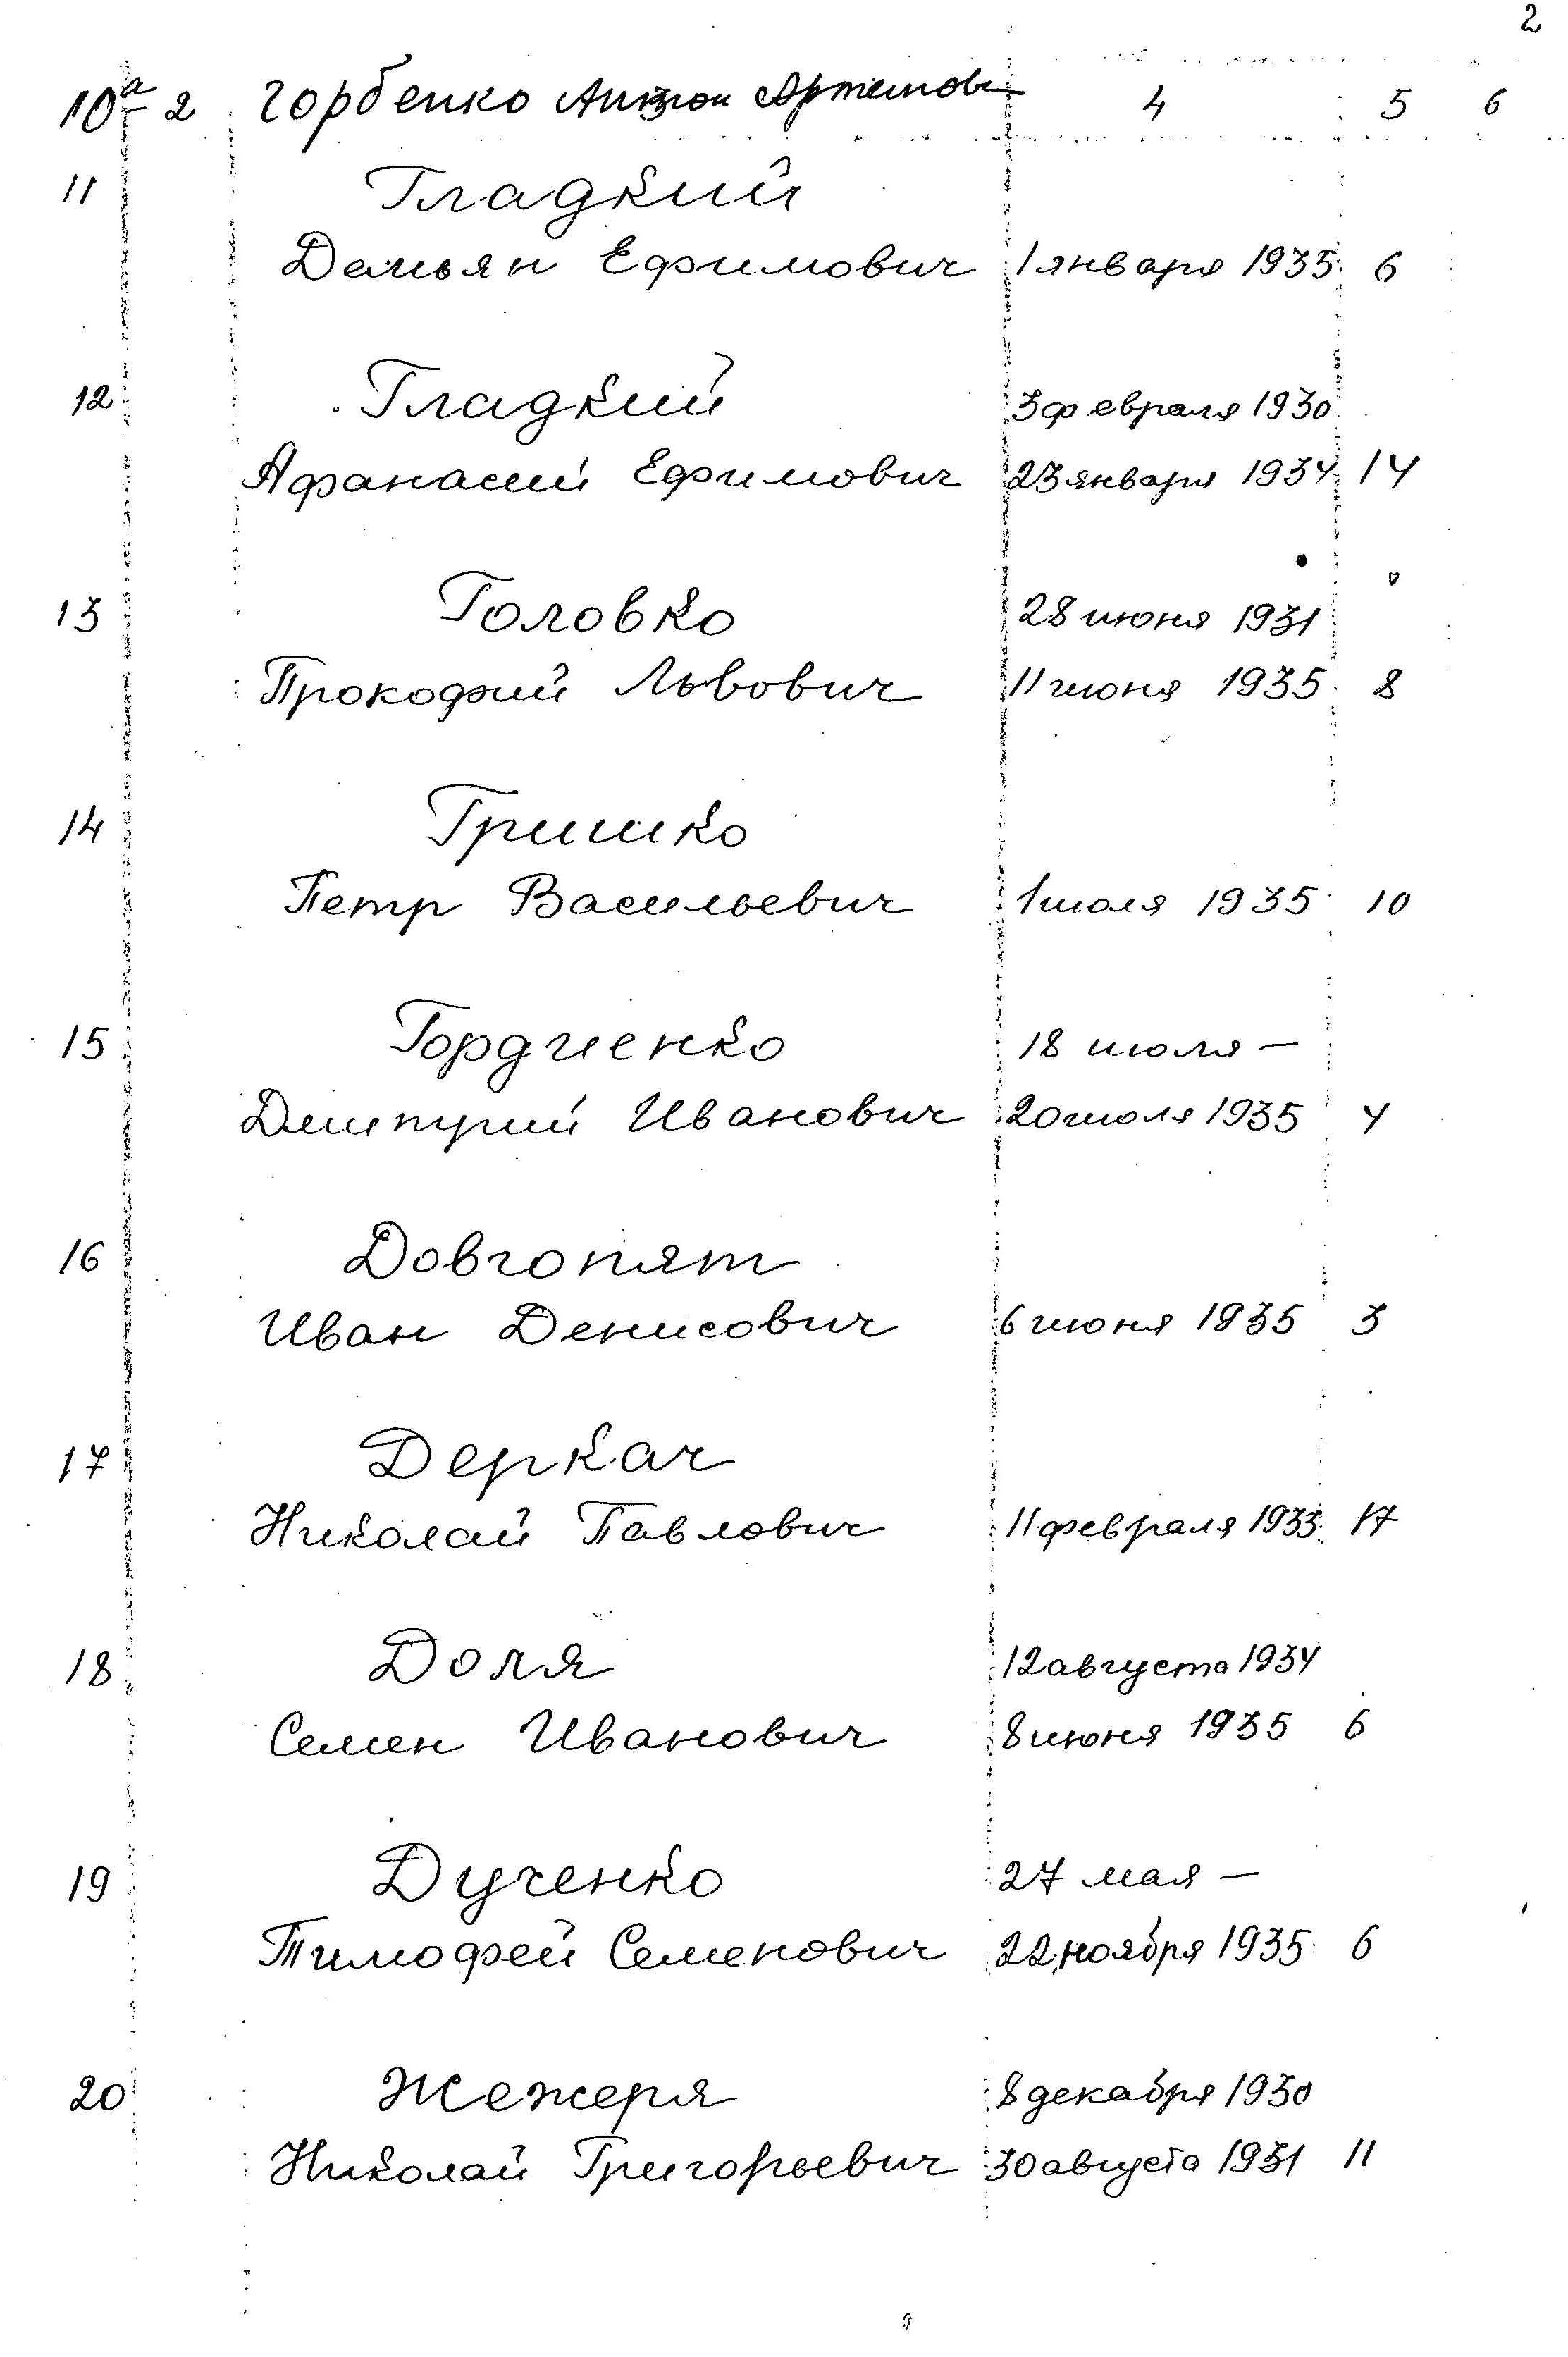 2
10а 2 Горбенко Антон Артемов 4 5 6
11 Гладкий
Демьян Ефимович 1 января 1935 6
12 Гладкий 3 февраля 1930
Афанасий Ефимович 23 января 1934 14
13 Головко 28 июня 1931
Прокофий Львович 11 июня 1935 8
14 Гришко
Петр Васильевич 1 июля 1935 10
15 Гордиенко 18 июля —
Дмитрий Иванович 20 июля 1935 4
16 Довгопят
Иван Денисович 6 июня 1935 3
17 Деркач
Николай Павлович 11 февраля 1933 17
18 Доля 12 августа 1934
Семен Иванович 8 июня 1935 6
19 Дученко 27 мая —
Тимофей Семенович 22 ноября 1935 6
20 Жежеря 8 декабря 1930
Николай Григорьевич 30 августа 1931 11